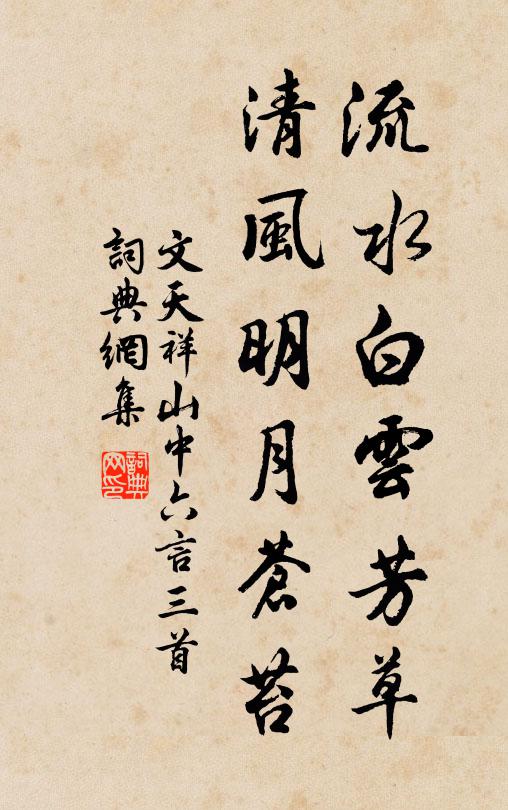 流水白雲芳草
清風明月蒼苔
文天祥山中六言三首
詞典網集
詞典
网印